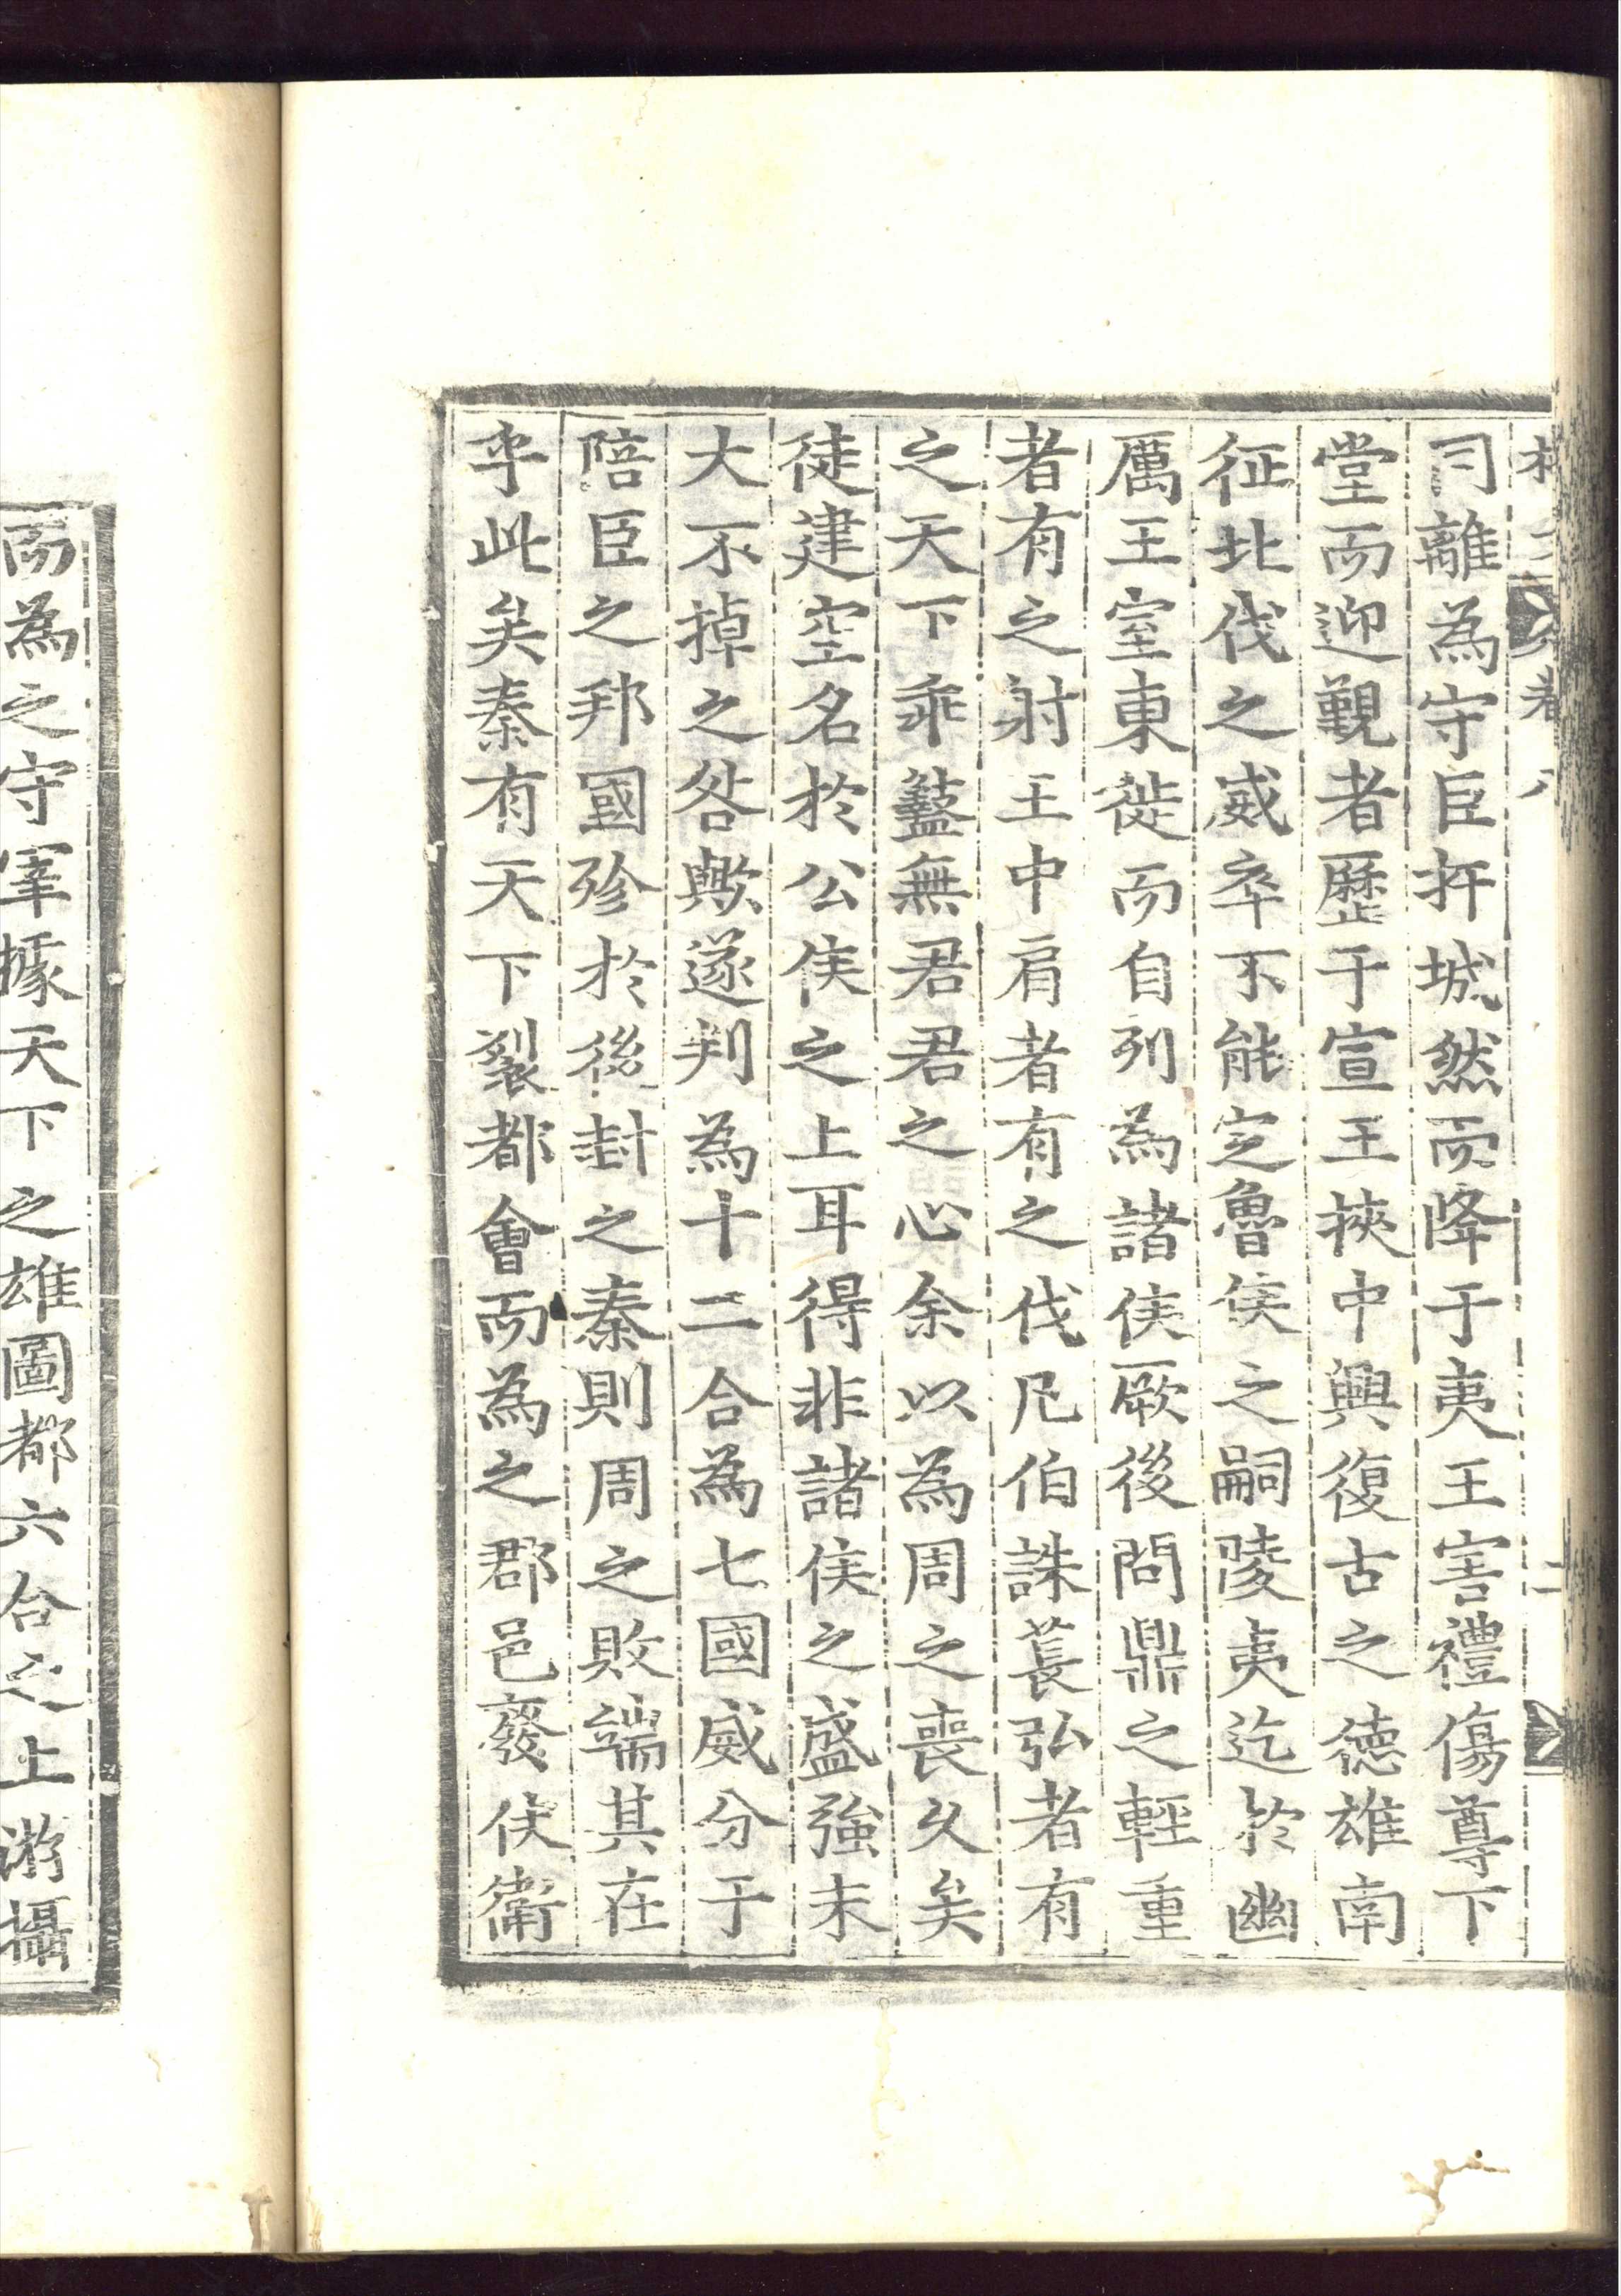 司離為守臣扞城然而降于夷王害禮傷尊下
堂而迎覲者歷于宣王挾中興復古之德雄南
征北伐之威卒不能定魯侯之嗣陵夷迄於幽
厲王室東徙而自列為諸侯厥後問鼎之輕重
者有之射王中肩者有之伐凡伯誅萇弘者有
之天下乖盭無君君之心余以為周之喪久矣
徒建空名於公侯之上耳得非諸侯之盛強末
大不掉之咎歟遂判為十二合為七國威分于
陪臣之邦國殄於後封之秦則周之敗端其在
乎此矣秦有天下裂都會而為之郡邑廢侯衛
而為之守宰據天下之雄圖都六合之上游攝